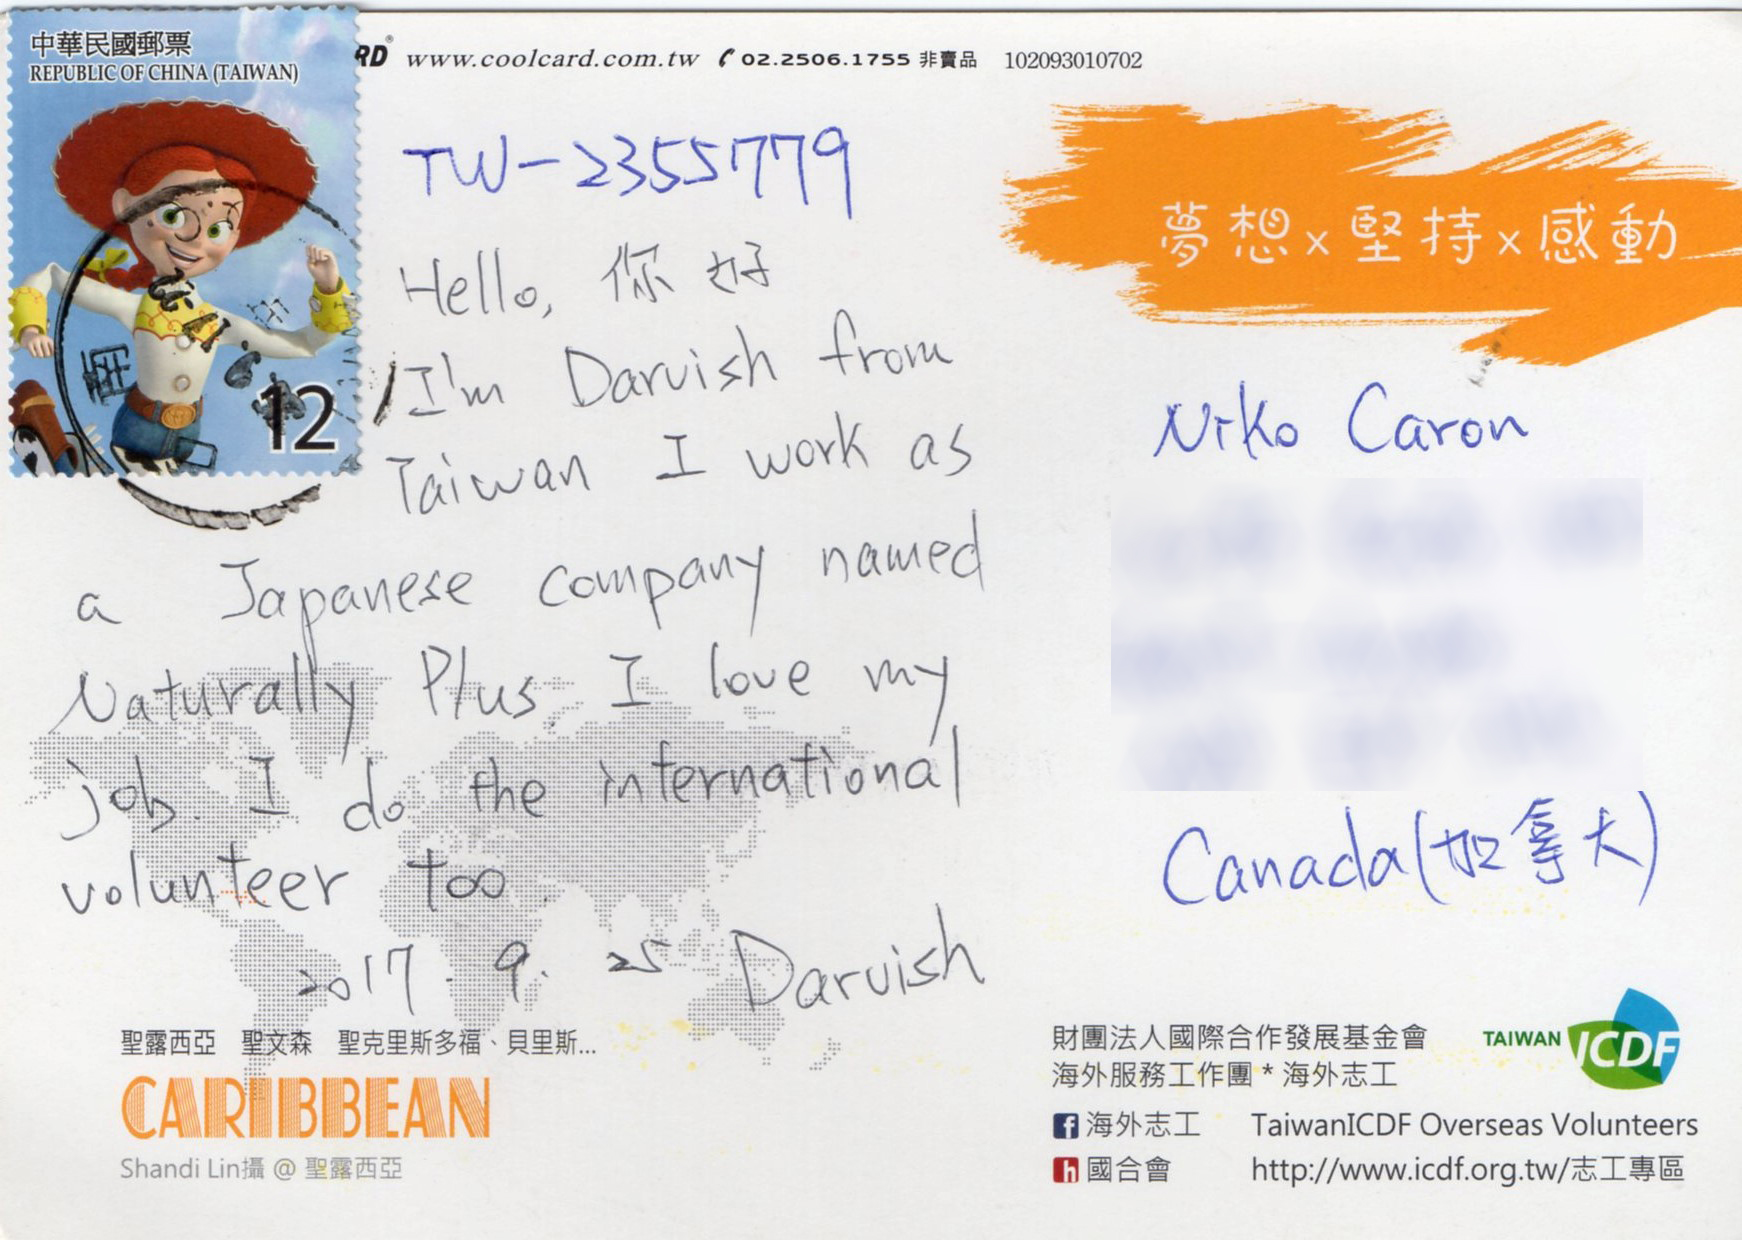 中華民國郵票
REPUBLIC OF CHINA (TAIWAN)
12
RD® www.coolcard.com.tw 02.2506.1755 非賣品 102093010702
TW-2355779
Hello, 你好
I'm Darvish from
Taiwan I work as
a Japanese company named
Naturally Plus. I love my
job. I do the international
volunteer too.
2017. 9. 25 Darvish
聖露西亞 聖文森 聖克里斯多福、貝里斯...
CARIBBEAN
Shandi Lin攝 @ 聖露西亞
夢想x堅持x感動
Niko Caron
Canada(加拿大)
財團法人國際合作發展基金會
海外服務工作團 * 海外志工
TAIWAN ICDF
海外志工 TaiwanICDF Overseas Volunteers
國合會 http://www.icdf.org.tw/志工專區